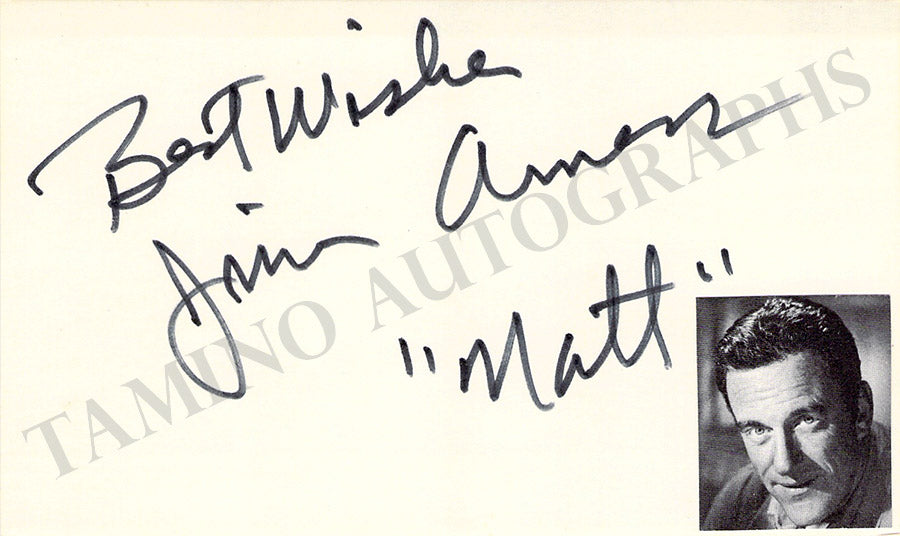 Best Wishe
Jim Arness
"Matt"
TAMINO AUTOGRAPHS